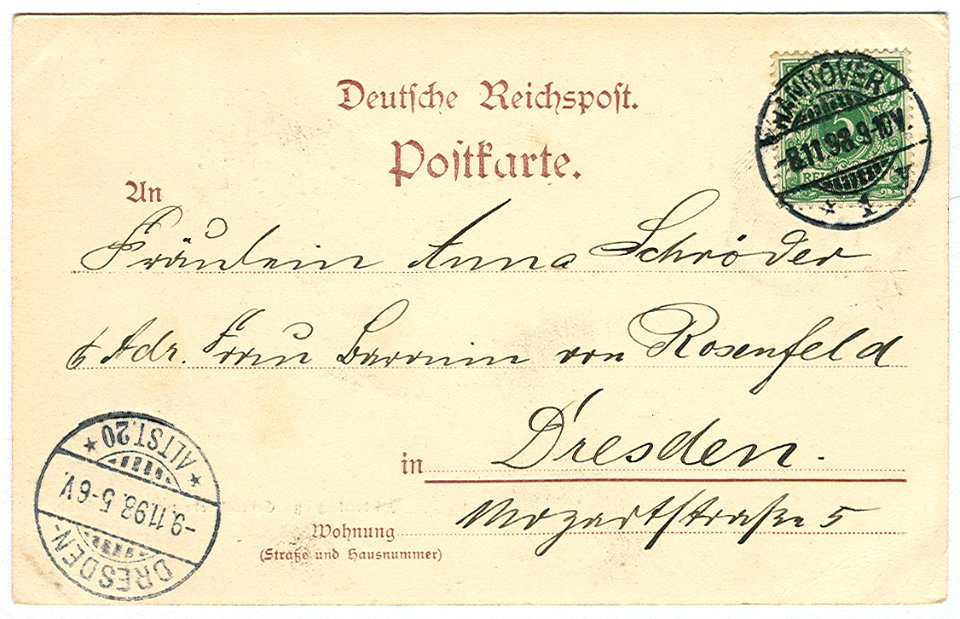 Deutsche Reichspost.
Postkarte.
HANNOVER
8.11.98.9-10V.
* 1 4
An
Fräulein Anna Schröder
Adr. Frau Baronin von Rosenfeld
in Dresden.
Mozartstraße 5
Wohnung
(Straße und Hausnummer)
DRESDEN-
-9.11.98. 5-6V.
* ALTST.20 *